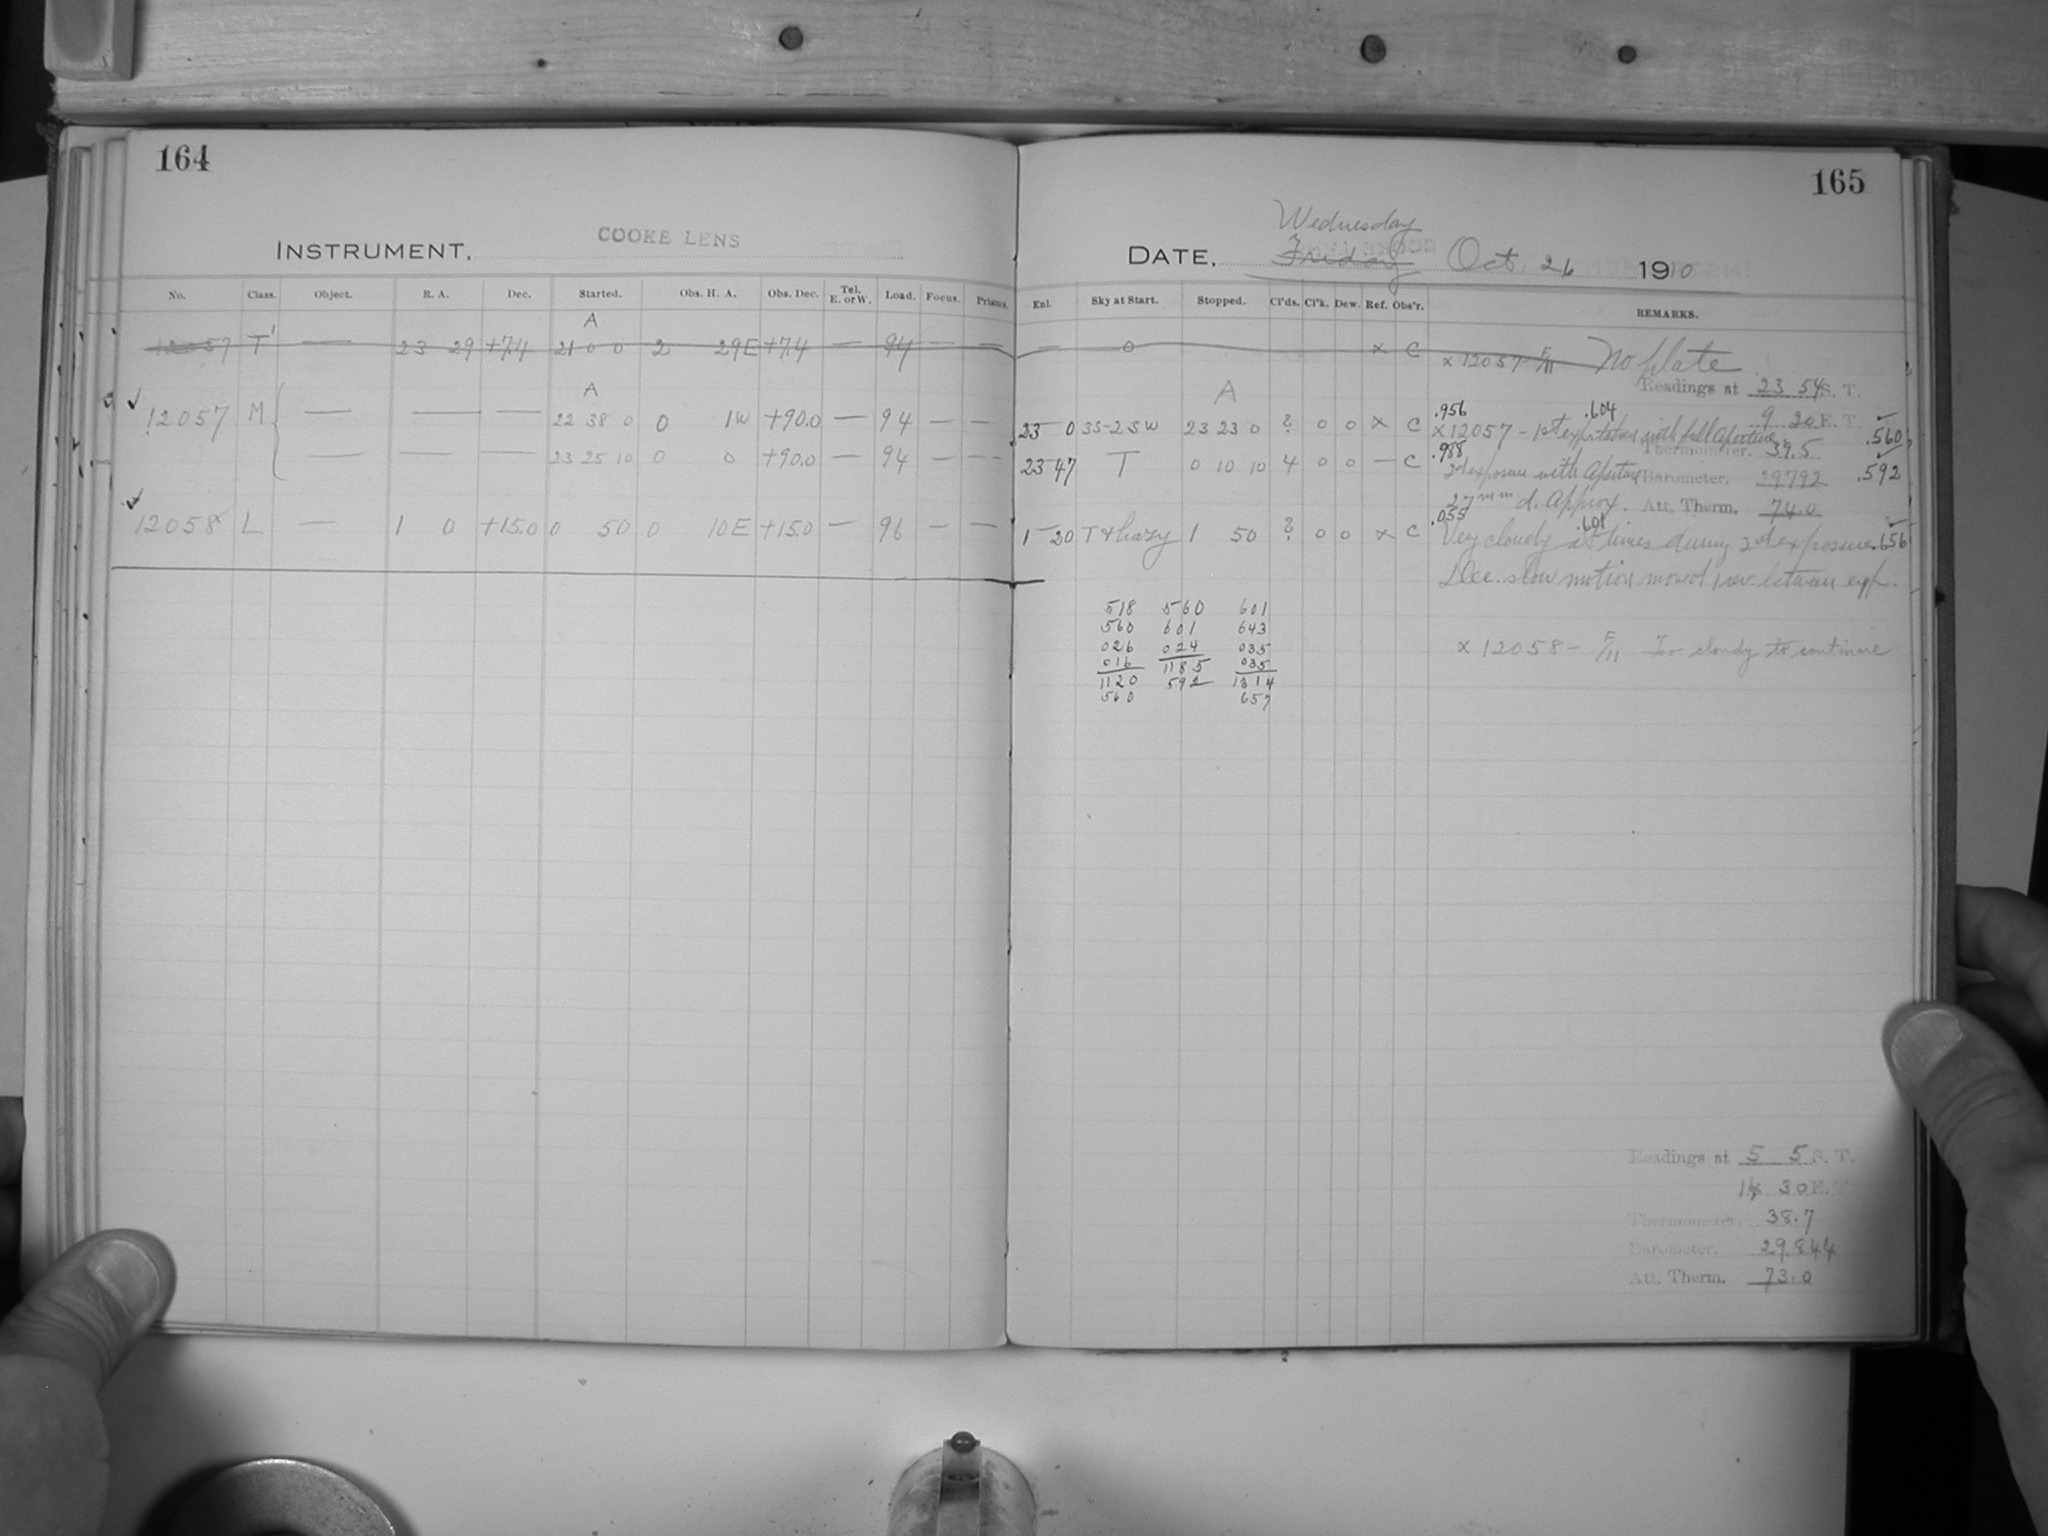 164
COOKE LENS
INSTRUMENT.
No. Class. Object. R. A. Dec. Started. Obs. H. A. Obs. Dec. Tel. E. or W. Load. Focus. Prisms.
A
12057 T' — 23 29 +74 21 0 0 2 29E +74 — 94 — —
A
12057 M — — — 22 38 0 0 1W +90.0 — 94 — —
— — — 23 25 10 0 0 +90.0 — 94 — —
12058 L — 1 0 +15.0 0 50 0 10E +15.0 — 96 — —
165
Wednesday
DATE. Friday Oct. 26 1910
Enl. Sky at Start. Stopped. Cl'ds. Cl'k. Dew. Ref. Obs'r. REMARKS.
— 0 x C x 12057 - F/11 No plate
Readings at 23 54 S. T.
A
9 20 E. T.
.956 .604
23 0 3S-2SW 23 23 0 ? 0 0 x C x 12057 - 1st exp. taken with full aperture .560
Thermometer. 39.5
.988
23 47 T 0 10 10 4 0 0 — C 2d exposure with aperture Barometer. 29792 .592
27mm d. approx. Att. Therm. 74.0
.055 .601
1 20 T & hazy 1 50 ? 0 0 x C Very cloudy at times during 2d exposure .656
Dec. slow motion moved 1 rev. between exp.
518 560 601
560 601 643
026 024 035
016 1185 035
1120 592 1314
560 657
x 12058 - F/11 Too cloudy to continue
Readings at 5 5 S. T.
14 30 E. T.
Thermometer. 38.7
Barometer. 29.844
Att. Therm. 73.0